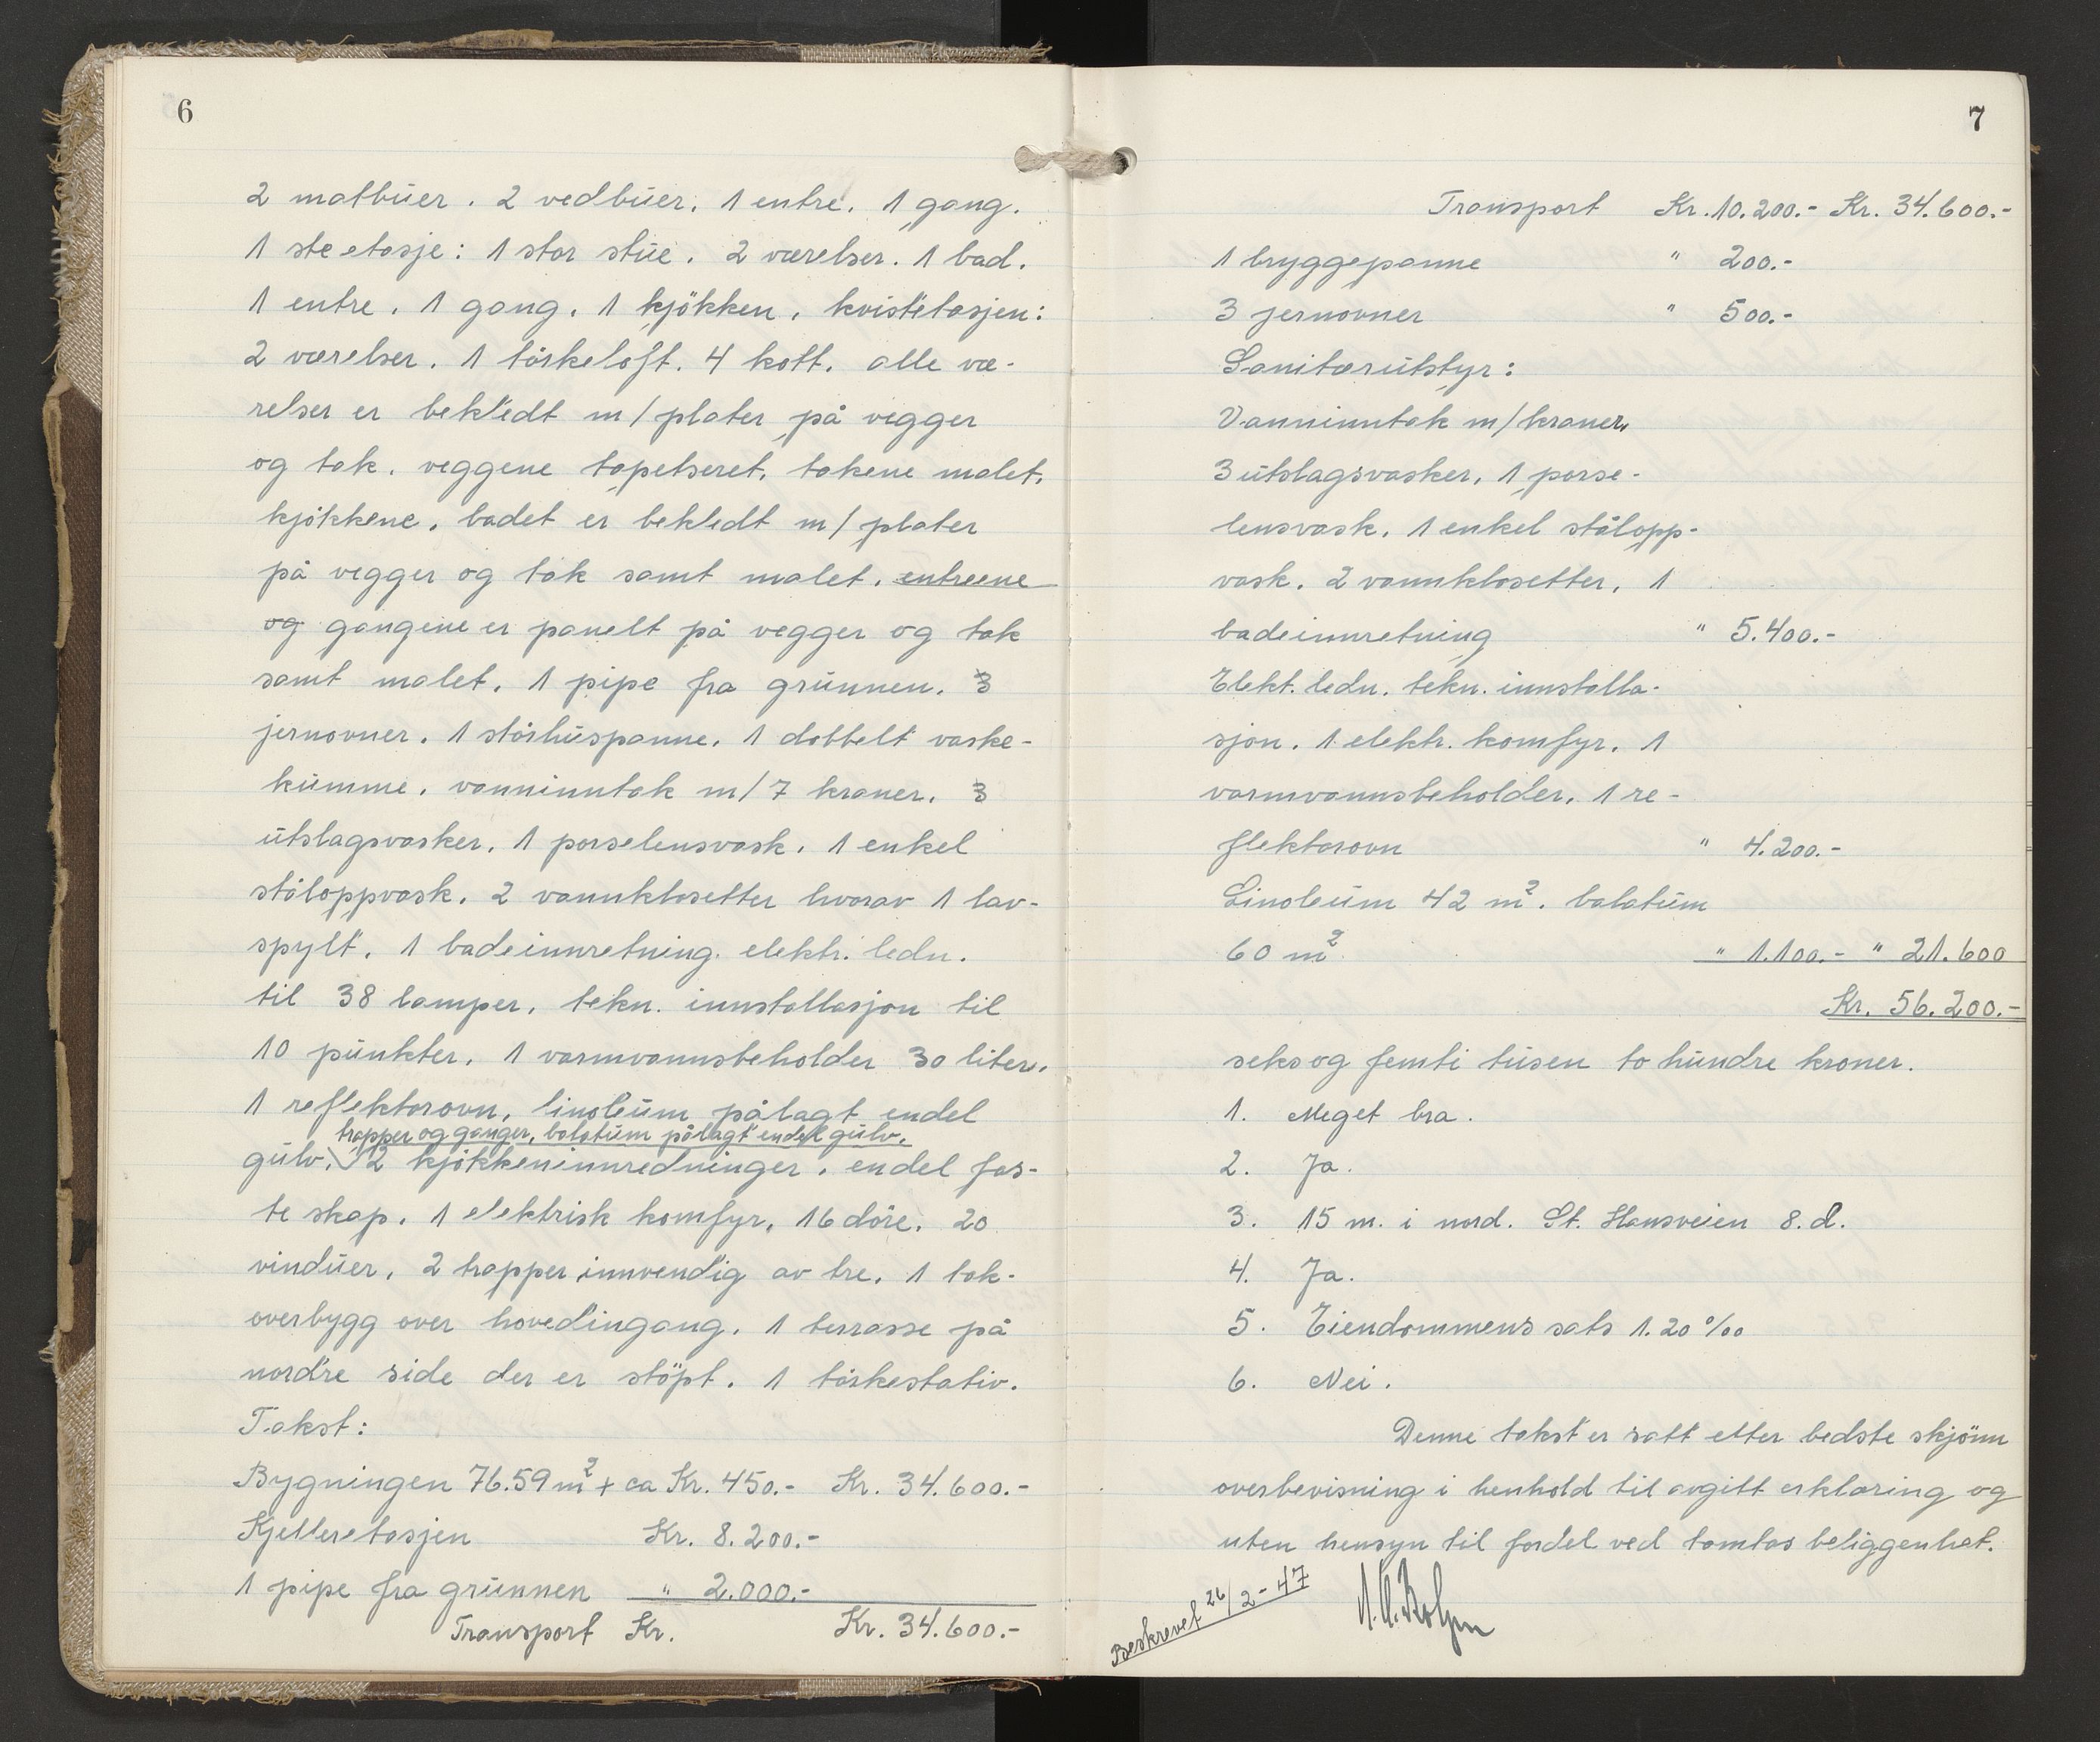 6
2 matbuer. 2 vedbuer. 1 entre. 1 gang.
1 ste etasje: 1 stor stue. 2 værelser. 1 bad.
1 entre. 1 gang. 1 kjökken. kvistetasjen:
2 værelser. 1 törkeloft. 4 kott. alle væ-
relser er bekledt m/plater på vegger
og tak. veggene tapetseret. takene malet.
kjökkene. badet er bekledt m/plater
på vegger og tak samt malet. entreene
og gangene er panelt på vegger og tak
samt malet. 1 pipe fra grunnen. 3
jernovner. 1 störhuspanne. 1 dobbelt vaske-
kumme. vanninntak m/7 kraner. 3
utslagsvasker. 1 porselensvask. 1 enkel
ståloppvask. 2 vannklosetter hvorav 1 lav-
spylt. 1 badeinnretning. elektr. ledn.
til 38 lamper. tekn. innstallasjon til
10 punkter. 1 varmvannsbeholder 30 liter.
1 reflektorovn. linoleum pålagt endel
trapper og ganger, balatum pålagt endel gulv.
gulv. 2 kjökkeninnredninger. endel fas-
te skap. 1 elektrisk komfyr. 16 döre. 20
vinduer. 2 trapper innvendig av tre. 1 tak-
overbygg over hovedingang. 1 terrasse på
nordre side der er stöpt. 1 törkestativ.
Takst:
Bygningen 76.59 m² + ca Kr. 450.- Kr. 34.600.-
Kjelleretasjen Kr. 8.200.-
1 pipe fra grunnen " 2.000.-
Transport Kr. Kr. 34.600.-
7
Transport Kr. 10.200.- Kr. 34.600.-
1 bryggepanne " 200.-
3 jernovner " 500.-
Sanitærutstyr:
Vanninntak m/kraner.
3 utslagsvasker. 1 porse-
lensvask. 1 enkel stålopp-
vask. 2 vannklosetter. 1
badeinnretning " 5.400.-
Elekt. ledn. tekn. innstalla-
sjon. 1 elektr. komfyr. 1
varmvannsbeholder. 1 re-
flektorovn " 4.200.-
Linoleum 42 m². balatum
60 m² " 1.100.- " 21.600
Kr. 56.200.-
seks og femti tusen to hundre kroner.
1. Meget bra.
2. Ja.
3. 15 m. i nord. St. Hansveien 8.d.
4. Ja.
5. Eiendommens sats 1.20 ‰
6. Nei.
Denne takst er satt etter bedste skjönn
overbevisning i henhold til avgitt erklæring og
uten hensyn til fordel ved tomtas beliggenhet.
Beskrevet 26/2-47